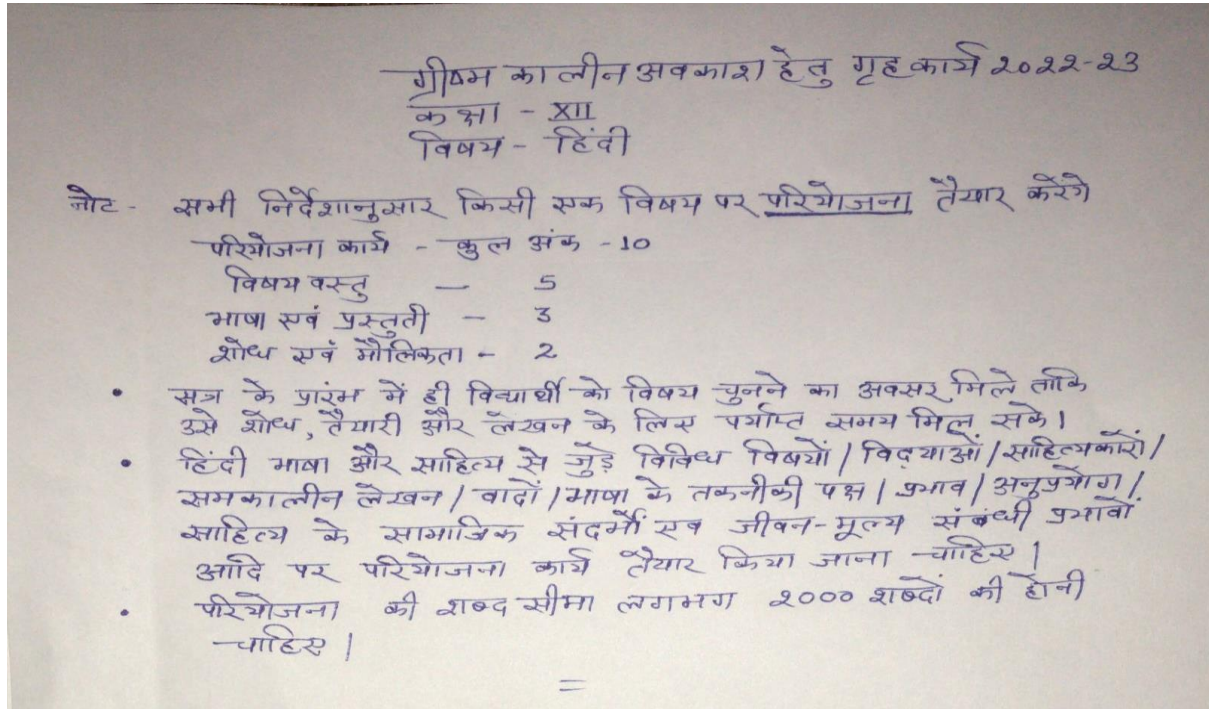 ग्रीष्म कालीन अवकाश हेतु गृहकार्य २०२२-२३
कक्षा - XII
विषय - हिंदी
नोट - सभी निर्देशानुसार किसी एक विषय पर परियोजना तैयार करेंगे
परियोजना कार्य - कुल अंक - 10
विषय वस्तु — 5
भाषा एवं प्रस्तुती - 3
शोध एवं मौलिकता - 2
• सत्र के प्रारंभ में ही विद्यार्थी को विषय चुनने का अवसर मिले ताकि
उसे शोध, तैयारी और लेखन के लिए पर्याप्त समय मिल सके।
• हिंदी भाषा और साहित्य से जुड़े विविध विषयों / विद्याओं / साहित्यकारों /
समकालीन लेखन / वादों / भाषा के तकनीकी पक्ष / प्रभाव / अनुप्रयोग /
साहित्य के सामाजिक संदर्भों एव जीवन-मूल्य संबंधी प्रभावों
आदि पर परियोजना कार्य तैयार किया जाना चाहिए।
• परियोजना की शब्द सीमा लगभग २००० शब्दों की होनी
चाहिए।
=